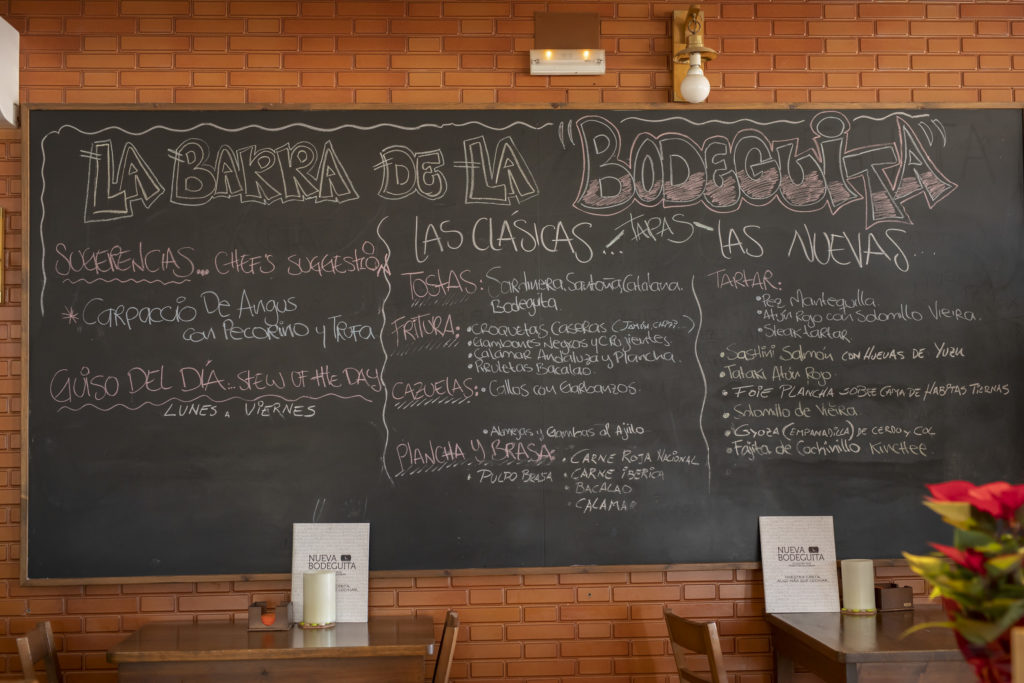 LA BARRA DE LA "BODEGUITA"
SUGERENCIAS... CHEF'S SUGGESTION
* CARPACCIO DE ANGUS
CON PECORINO Y TRUFA
GUISO DEL DÍA... STEW OF THE DAY
LUNES A VIERNES
LAS CLÁSICAS... TAPAS - LAS NUEVAS...
TOSTAS: Sardinera, Santoña, Catalana.
Bodeguita
FRITURA: • CROQUETAS CASERAS
• Gambones Negros y Crujientes
• Calamar Andaluza y Plancha.
• Piruletas Bacalao.
CAZUELAS: • Callos con Garbanzos.
• Almejas y Gambas al Ajillo
PLANCHA Y BRASA
• PULPO BRASA
• CARNE ROJA NACIONAL
• CARNE IBERICA
• BACALAO
• CALAMAR
TARTAR:
• Pez Mantequilla
• Atún Rojo con Solomillo Vieira.
• Steak tartar
• Sashimi Salmón CON HUEVAS DE YUZU
• Tataki Atún Rojo
• FOIE PLANCHA SOBRE CAMA DE HABITAS TIERNAS
• Solomillo de Vieira
• GYOZA (EMPANADILLA) DE CERDO Y COL
• Fajita de Cochinillo Kimchee.
NUEVA
BODEGUITA
NUEVA
BODEGUITA
NUESTRA CARTA,
ALGO MÁS QUE COCINAR.